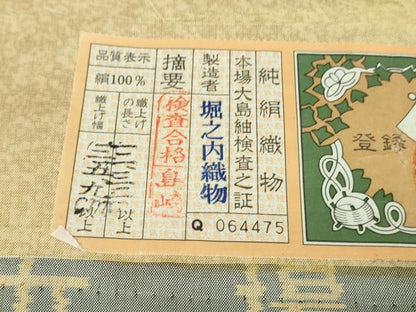 純絹織物
本場大島紬検査之証
製造者 堀之内織物
Q 064475
摘要
検査合格
品質表示
絹100%
織上げの長さ 以上
織上げ幅 以上
登録